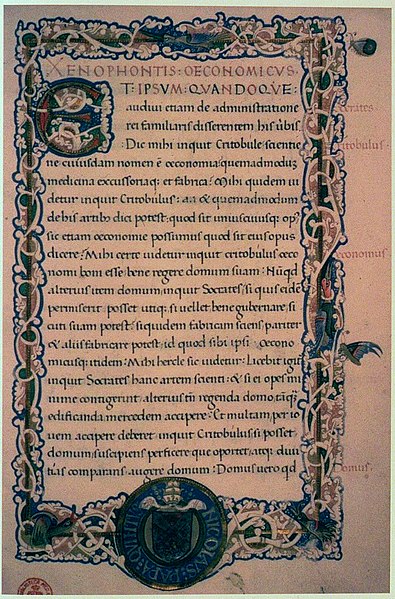 XENOPHONTIS: OECONOMICVS
ET: IPSVM: QVANDOQVE:
audiui etiam de administratione
rei familiaris disserentem his ūbis
Dic mihi inquit Critobule: scientię
ne cuiusdam nomen ē œconomia: quemadmodū
medicina excussoriaq: et fabrica? Mihi quidem ui
detur inquit Critobulus: an & quemadmodum
de his artibꝰ dici potest: quod sit uniuscuiusq: opꝰ
sic etiam œconomie possumus quod sit eius opus
dicere? Mihi certe uidetur inquit critobulus œco
nomi boni esse: bene regere domum suam: Nūqd
alterius item domum inquit Socrates: si quis eidē
permiserit. posset utiq: si uellet bene gubernare: si
cuti suam potest? siquidem fabricam sciens pariter
& alii fabricare potest id quod sibi ipsi œcono
micusq: itidem: Mihi hercle sic uidetur: Licebit igit̃
inquit Socrates hanc artem scienti: & si ei opes mi
nime contigerint alterius tn̄ regenda domo: tāq̃
edificanda mercedem accipere: Et multam per io
uem accipere deberet inquit Critobulus si posset
domum suscipiens perficere que oportet: atq: diui
tias comparans augere domum: Domus uero qd
Socrates
Critobulus.
economus
Domus.
NICOLAVS: PAPA: QVINTVS